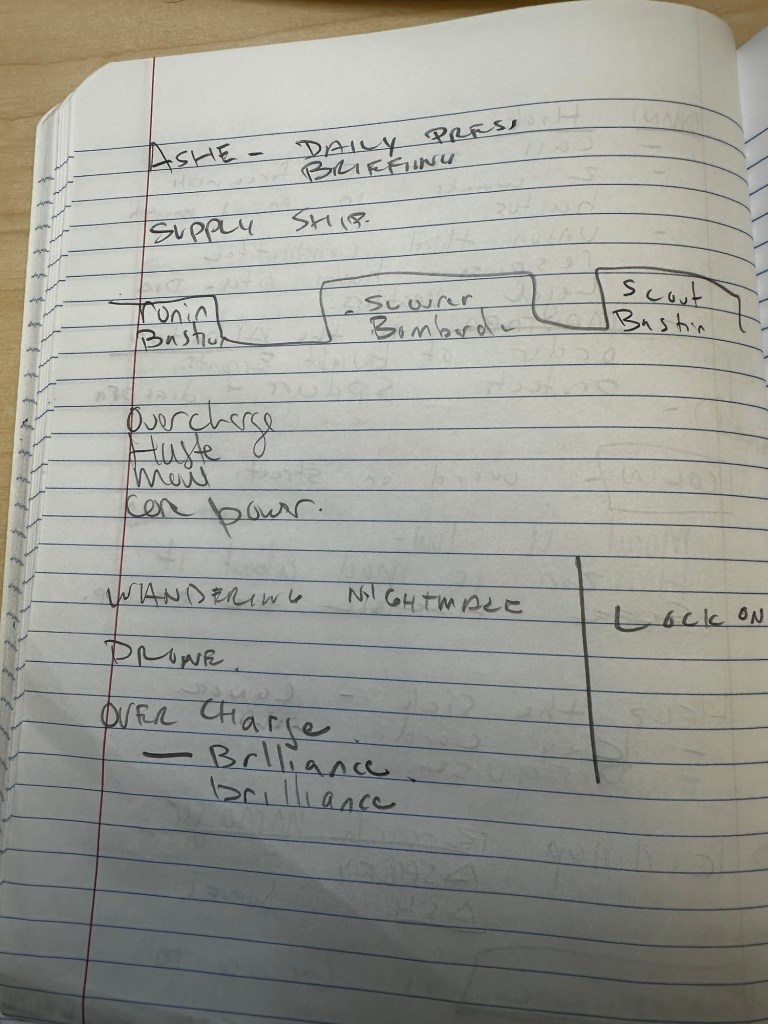 ASHE - DAILY PRESS
BRIEFIING
SUPPLY SHIP.
ronin
Bastion
- Scourer
Bombarde
Scout
Bastin
Overcharge
Haste
Core powr.
WANDERING NIGHTMARE
LOCK ON
DRONE.
OVER Charge
— Brlliance.
brilliance